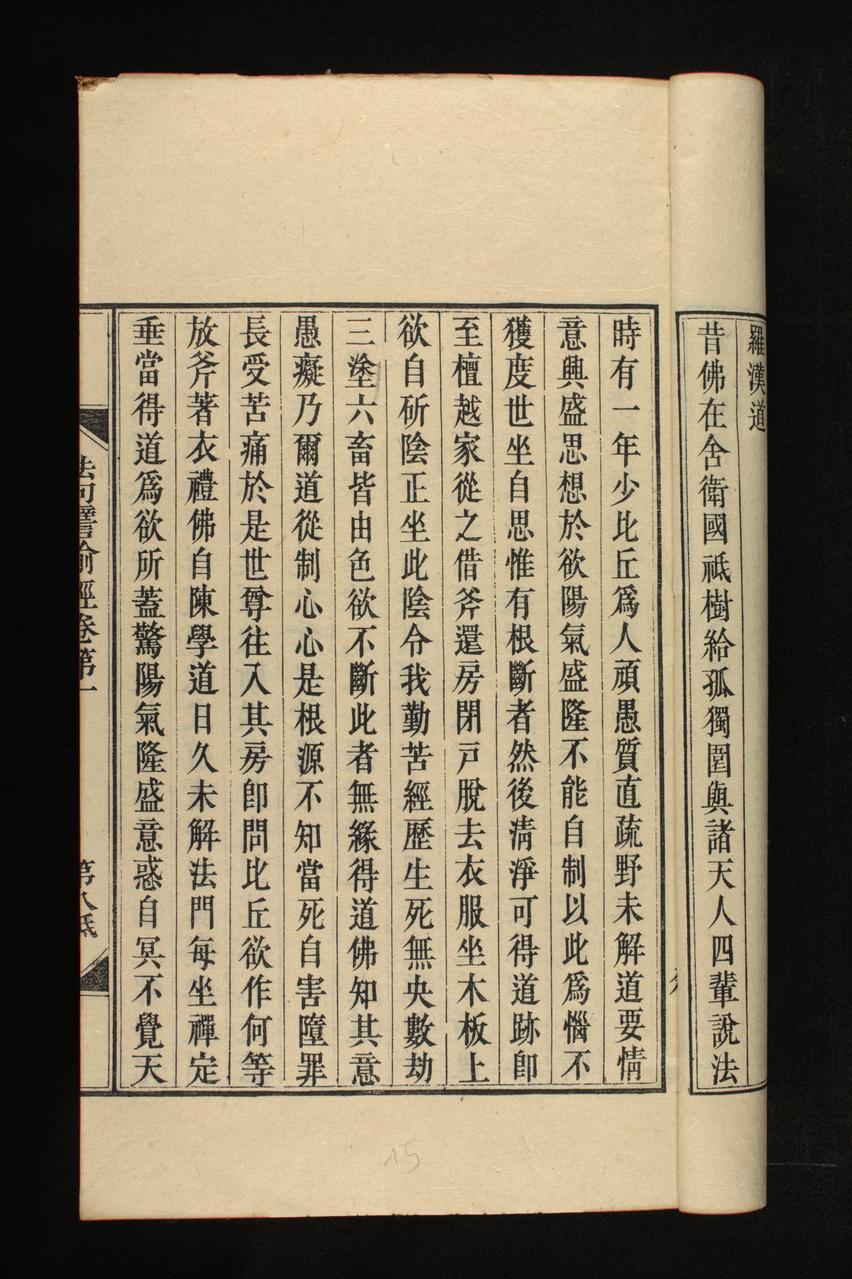 羅漢道
昔佛在舍衛國祗樹給孤獨園與諸天人四輩說法
時有一年少比丘爲人頑愚質直疏野未解道要情
意興盛思想於欲陽氣盛隆不能自制以此爲惱不
獲度世坐自思惟有根斷者然後淸淨可得道跡卽
至檀越家從之借斧還房閉戸脫去衣服坐木板上
欲自斫陰正坐此陰令我勤苦經歷生死無央數劫
三塗六畜皆由色欲不斷此者無緣得道佛知其意
愚癡乃爾道從制心心是根源不知當死自害墮罪
長受苦痛於是世尊往入其房卽問比丘欲作何等
放斧著衣禮佛自陳學道日久未解法門每坐禪定
垂當得道爲欲所蓋驚陽氣隆盛意惑自冥不覺天
法句譬喻經卷第一
第八紙
15